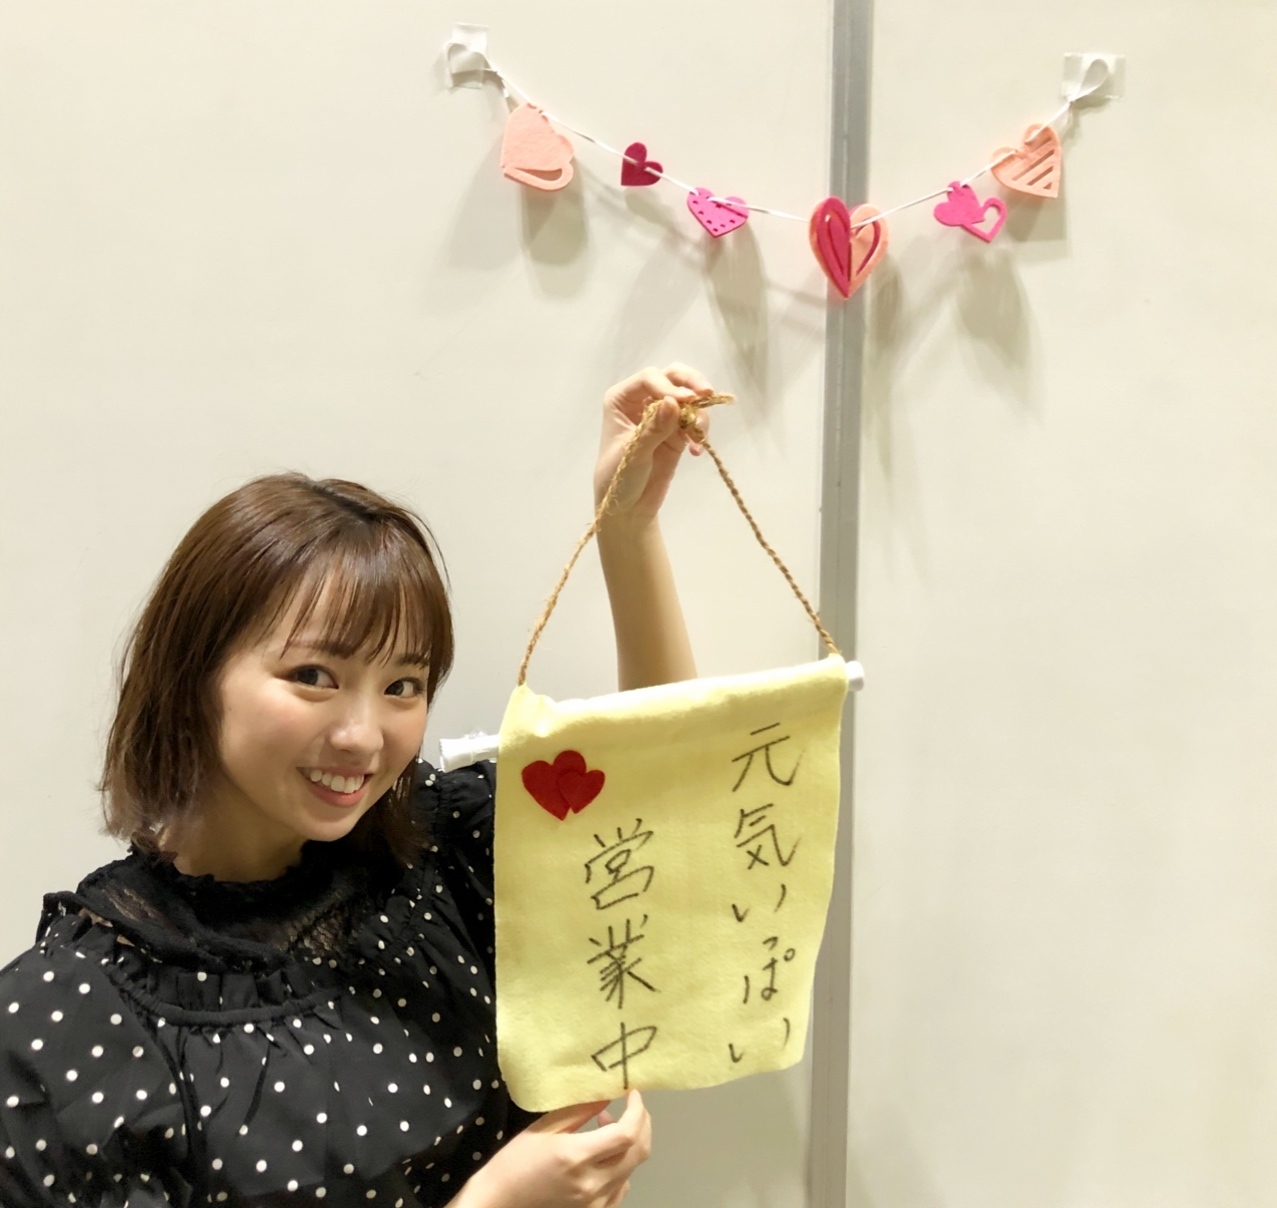 元気いっぱい
営業中